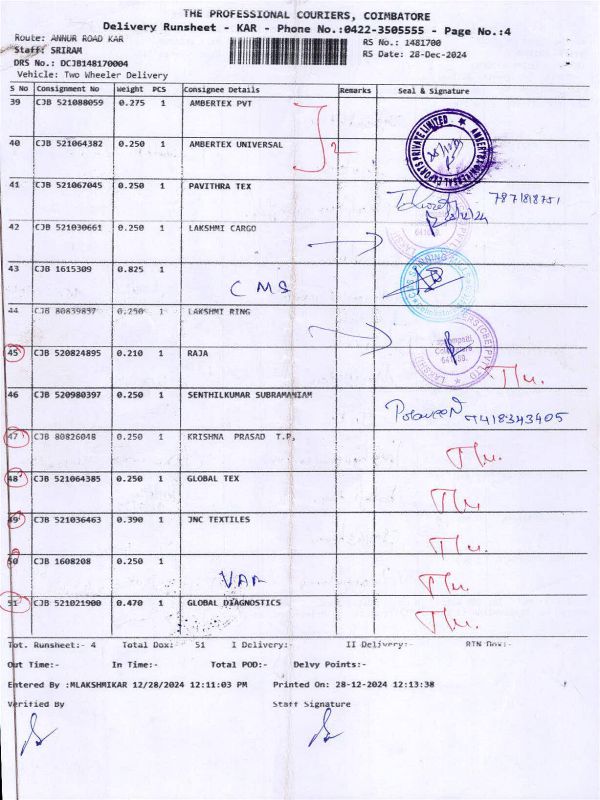 THE PROFESSIONAL COURIERS, COIMBATORE
Delivery Runsheet - KAR - Phone No.:0422-3505555 - Page No.:4
Route: ANNUR ROAD KAR
RS No.: 1481700
Staff: SRIRAM
RS Date: 28-Dec-2024
DRS No.: DCJB148170004
Vehicle: Two Wheeler Delivery
S No Consignment No Weight PCS Consignee Details Remarks Seal & Signature
39 CJB 521088059 0.275 1 AMBERTEX PVT
2
40 CJB 521064382 0.250 1 AMBERTEX UNIVERSAL
41 CJB 521067045 0.250 1 PAVITHRA TEX
42 CJB 521030661 0.250 1 LAKSHMI CARGO
43 CJB 1615309 0.825 1
CMS
44 CJB 80839837 0.250 1 LAKSHMI RING
45 CJB 520824895 0.210 1 RAJA
46 CJB 520980397 0.250 1 SENTHILKUMAR SUBRAMANIAM
47 CJB 80826048 0.250 1 KRISHNA PRASAD T.P,
48 CJB 521064385 0.250 1 GLOBAL TEX
49 CJB 521036463 0.390 1 JNC TEXTILES
50 CJB 1608208 0.250 1
51 CJB 521021900 0.470 1 GLOBAL DIAGNOSTICS
Tot. Runsheet:- 4 Total Dox:- 51 I Delivery:- II Delivery:- RTN Dox:-
Out Time:- In Time:- Total POD:- Delvy Points:-
Entered By :MLAKSHMIKAR 12/28/2024 12:11:03 PM Printed On: 28-12-2024 12:13:38
Verified By Staff Signature